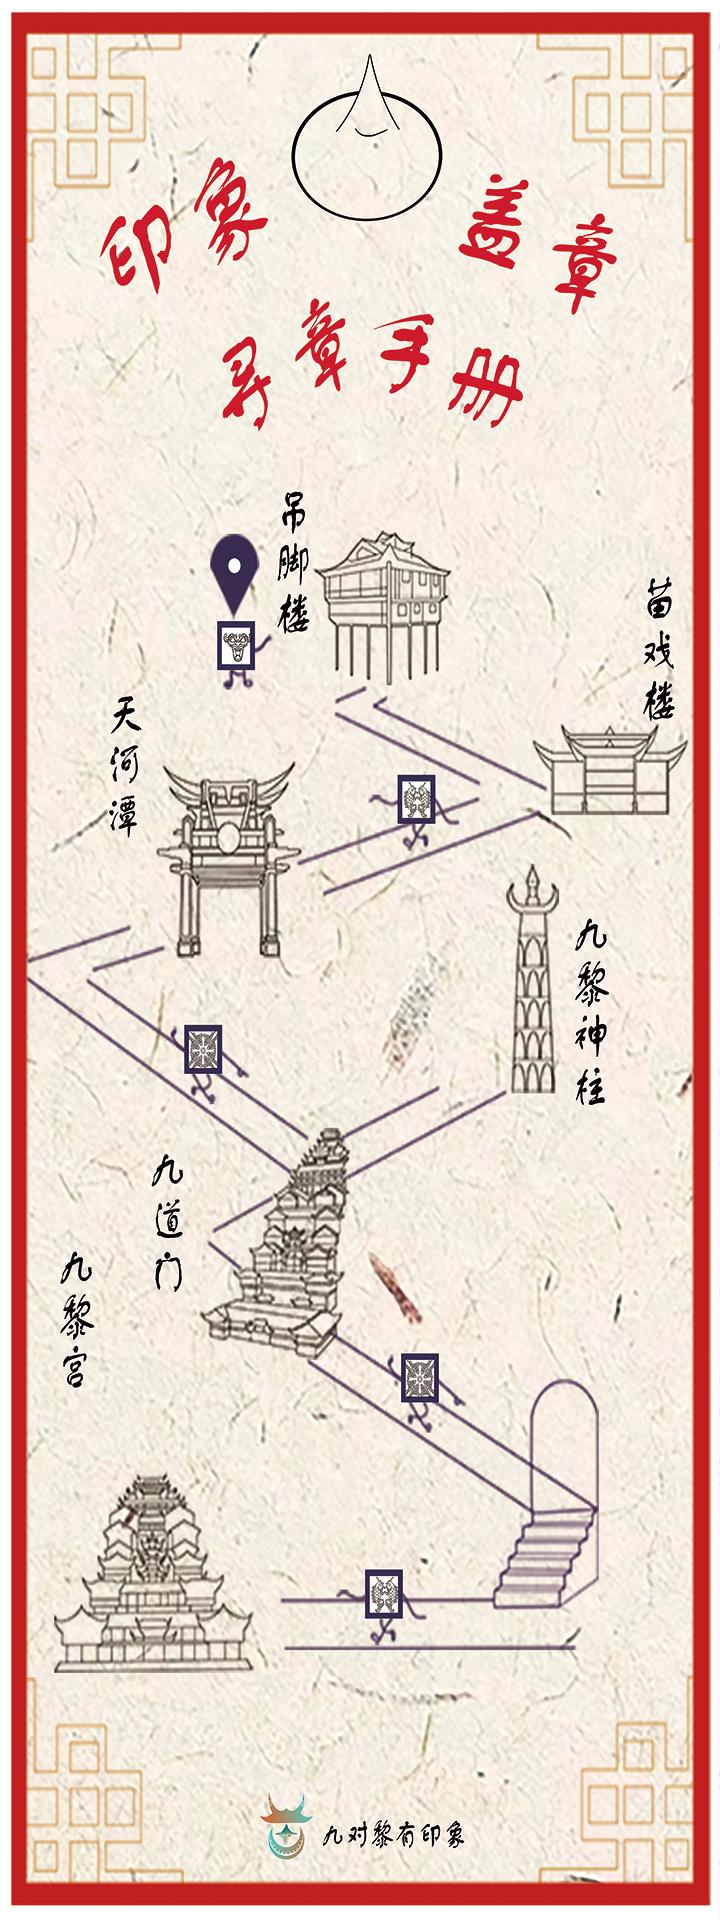 印象
盖章
寻章手册
吊脚楼
苗戏楼
天河潭
九黎神柱
九道门
九黎宫
九对黎有印象